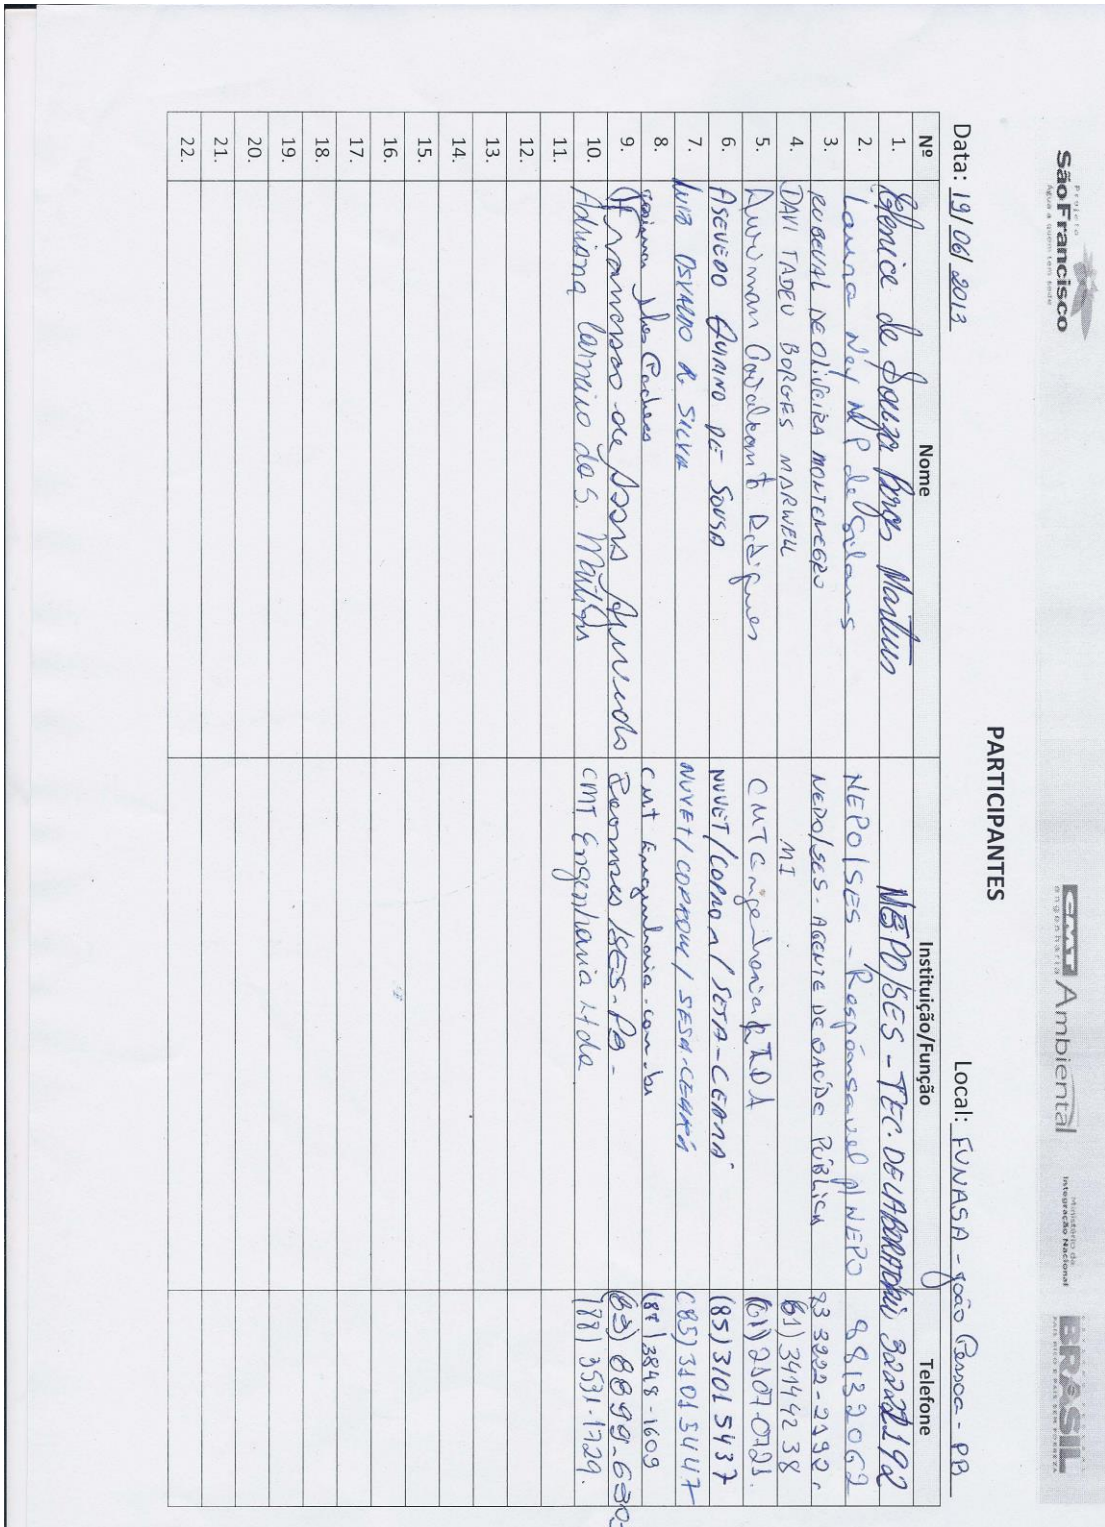 Projeto
São Francisco
Água a quem tem sede
CMT Ambiental
engenharia
Ministério da
Integração Nacional
BRASIL
PAÍS RICO É PAÍS SEM POBREZA
PARTICIPANTES
Data: 19/06/2013 Local: FUNASA - João Pessoa - PB
Nº Nome Instituição/Função Telefone
1. de Souza Borges Martins NEPO/SES - TEC. DE LABORATORIO 32222192
2. Laura Ney de NEPO/SES - Responsavel p/ NEPO 88132062
3. RUBEVAL DE OLIVEIRA MONTENEGRO NEPO/SES - AGENTE DE SAÚDE PÚBLICA 83 3222-2192
4. DAVI TADEU BORGES MARWELL MI 61) 34144238
5. Cavalcanti Rodrigues CMT Engenharia LTDA (61) 2107-0721
6. ASEVEDO QUIRINO DE SOUSA NUVET/COPROM/SESA-CEARÁ (85) 3101 5437
7. LUIZ OSVALDO R. SILVA NUVET/COPROM/SESA-CEARÁ (85) 3101 5447
8. Pacheco CMT Engenharia.com.br (87) 3848-1609
9. Francisco de Assis Azevedo /SES-PB - (83) 8899-630
10. Adriana Carneiro da S. CMT Engenharia Ltda (88) 3531-1729.
11.
12.
13.
14.
15.
16.
17.
18.
19.
20.
21.
22.